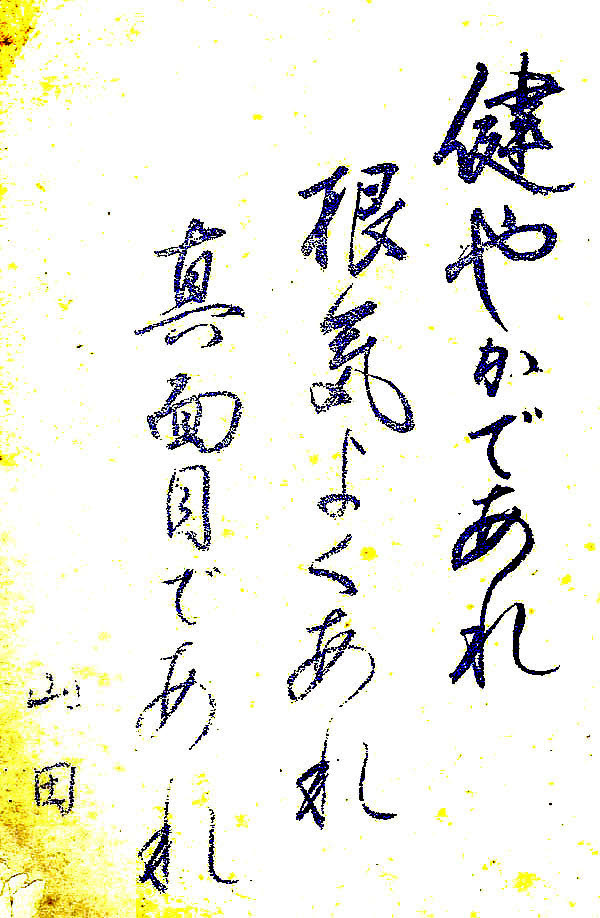 健やかであれ
根気よくあれ
真面目であれ
山田